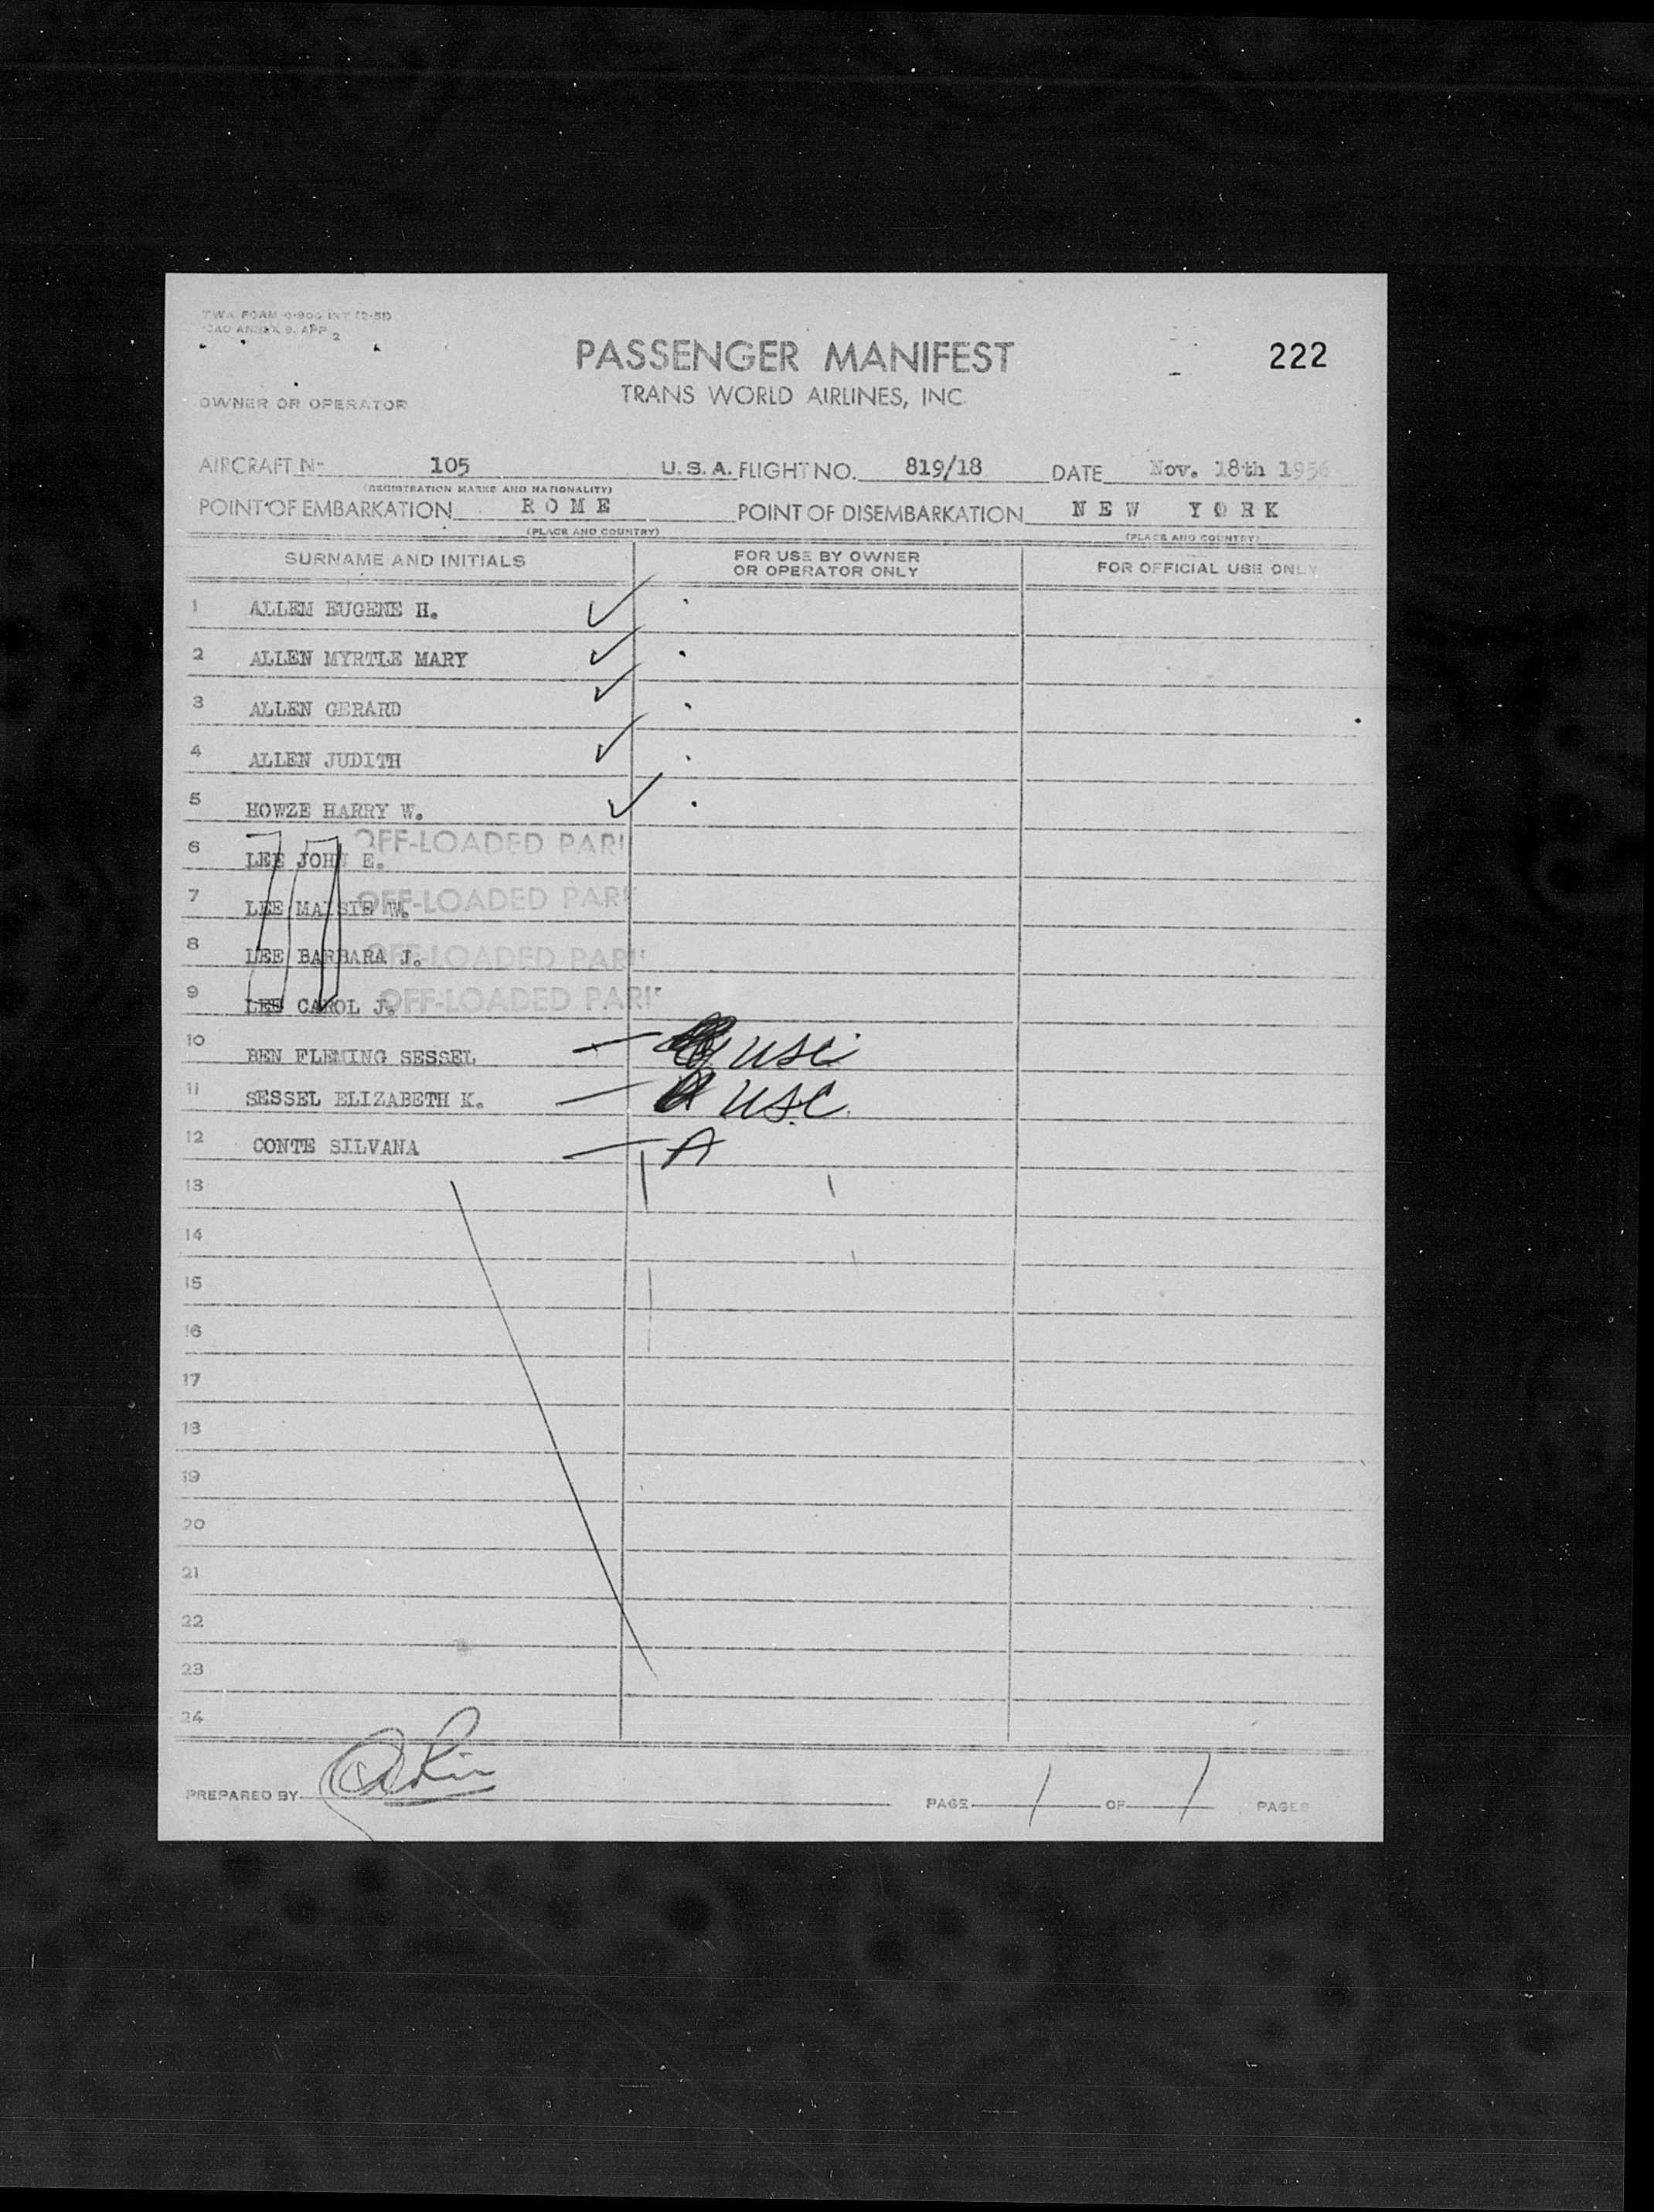 TWA FORM O-800 INT (2-51)
ICAO ANNEX 9. APP 2
PASSENGER MANIFEST
222
TRANS WORLD AIRLINES, INC.
OWNER OR OPERATOR
AIRCRAFT No 105 U. S. A. FLIGHT NO. 819/18 DATE Nov. 18th 1956
(REGISTRATION MARKS AND NATIONALITY)
POINT OF EMBARKATION ROME POINT OF DISEMBARKATION NEW YORK
(PLACE AND COUNTRY) (PLACE AND COUNTRY)
SURNAME AND INITIALS FOR USE BY OWNER OR OPERATOR ONLY FOR OFFICIAL USE ONLY
1 ALLEM EUGENE H. ✓
2 ALLEN MYRTLE MARY ✓
3 ALLEN GERARD ✓
4 ALLEN JUDITH ✓
5 HOWZE HARRY W. ✓
6 LEE JOHN E. OFF-LOADED PARI
7 LEE MAISIE W. OFF-LOADED PARI
8 LEE BARBARA J. OFF-LOADED PARI
9 LEE CAROL J. OFF-LOADED PARI
10 BEN FLEMING SESSEL — USC
11 SESSEL ELIZABETH K. — USC
12 CONTE SILVANA — A
13
14
15
16
17
18
19
20
21
22
23
24
PREPARED BY PAGE 1 OF 1 PAGES